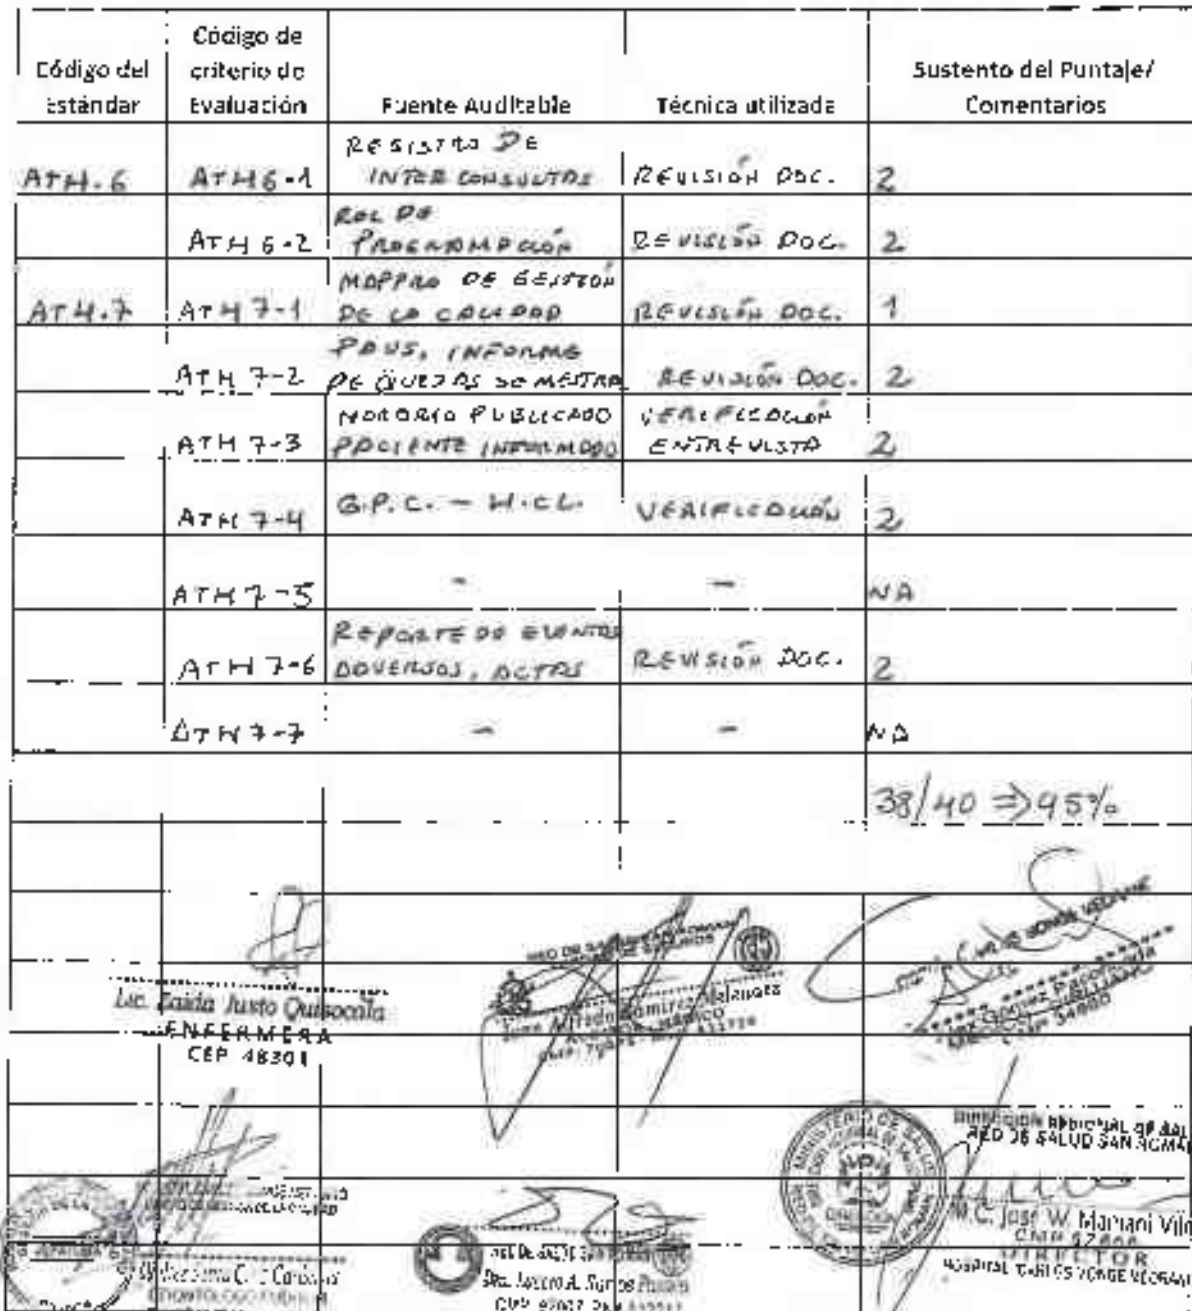 Código del Estándar
Código de criterio de Evaluación
Fuente Auditable
Técnica utilizada
Sustento del Puntaje/ Comentarios
ATH.6 ATH6-1 REGISTRO DE INTERCONSULTAS REVISIÓN DOC. 2
ATH 6-2 ROL DE PROGRAMACIÓN REVISIÓN DOC. 2
ATH.7 ATH 7-1 MAPPRO DE GESTIÓN DE LA CALIDAD REVISIÓN DOC. 1
ATH 7-2 PAUS, INFORME DE QUEJAS SEMESTRA REVISIÓN DOC. 2
ATH 7-3 HORARIO PUBLICADO PACIENTE INFORMADO VERIFICACIÓN ENTREVISTA 2
ATH 7-4 G.P.C. - H.CL. VERIFICACIÓN 2
ATH 7-5 - - NA
ATH 7-6 REPORTE DE EVENTOS ADVERSOS, ACTAS REVISIÓN DOC. 2
ATH 7-7 - - NA
38/40 => 95%
Lic. Zaida Justo Quisocala
ENFERMERA
CEP 48301
MINISTERIO DE SALUD
RED DE SALUD SAN ROMÁ
M.C. José W. Mamani Vil
DIRECTOR